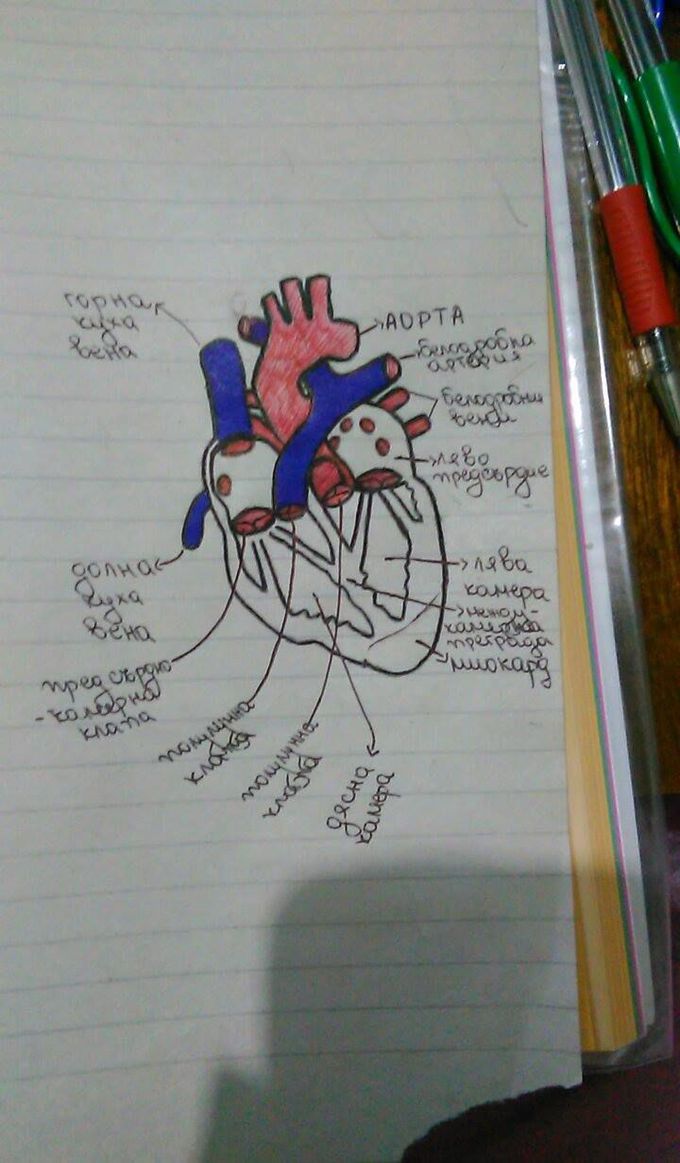 горна
куха
вена
АОРТА
белодробна
артерия
белодробни
вени
ляво
предсърдие
долна
куха
вена
лява
камера
преграда
миокард
предсърдно
-камерна
клапа
полулунна
клапа
полулунна
клапа
дясна
камера